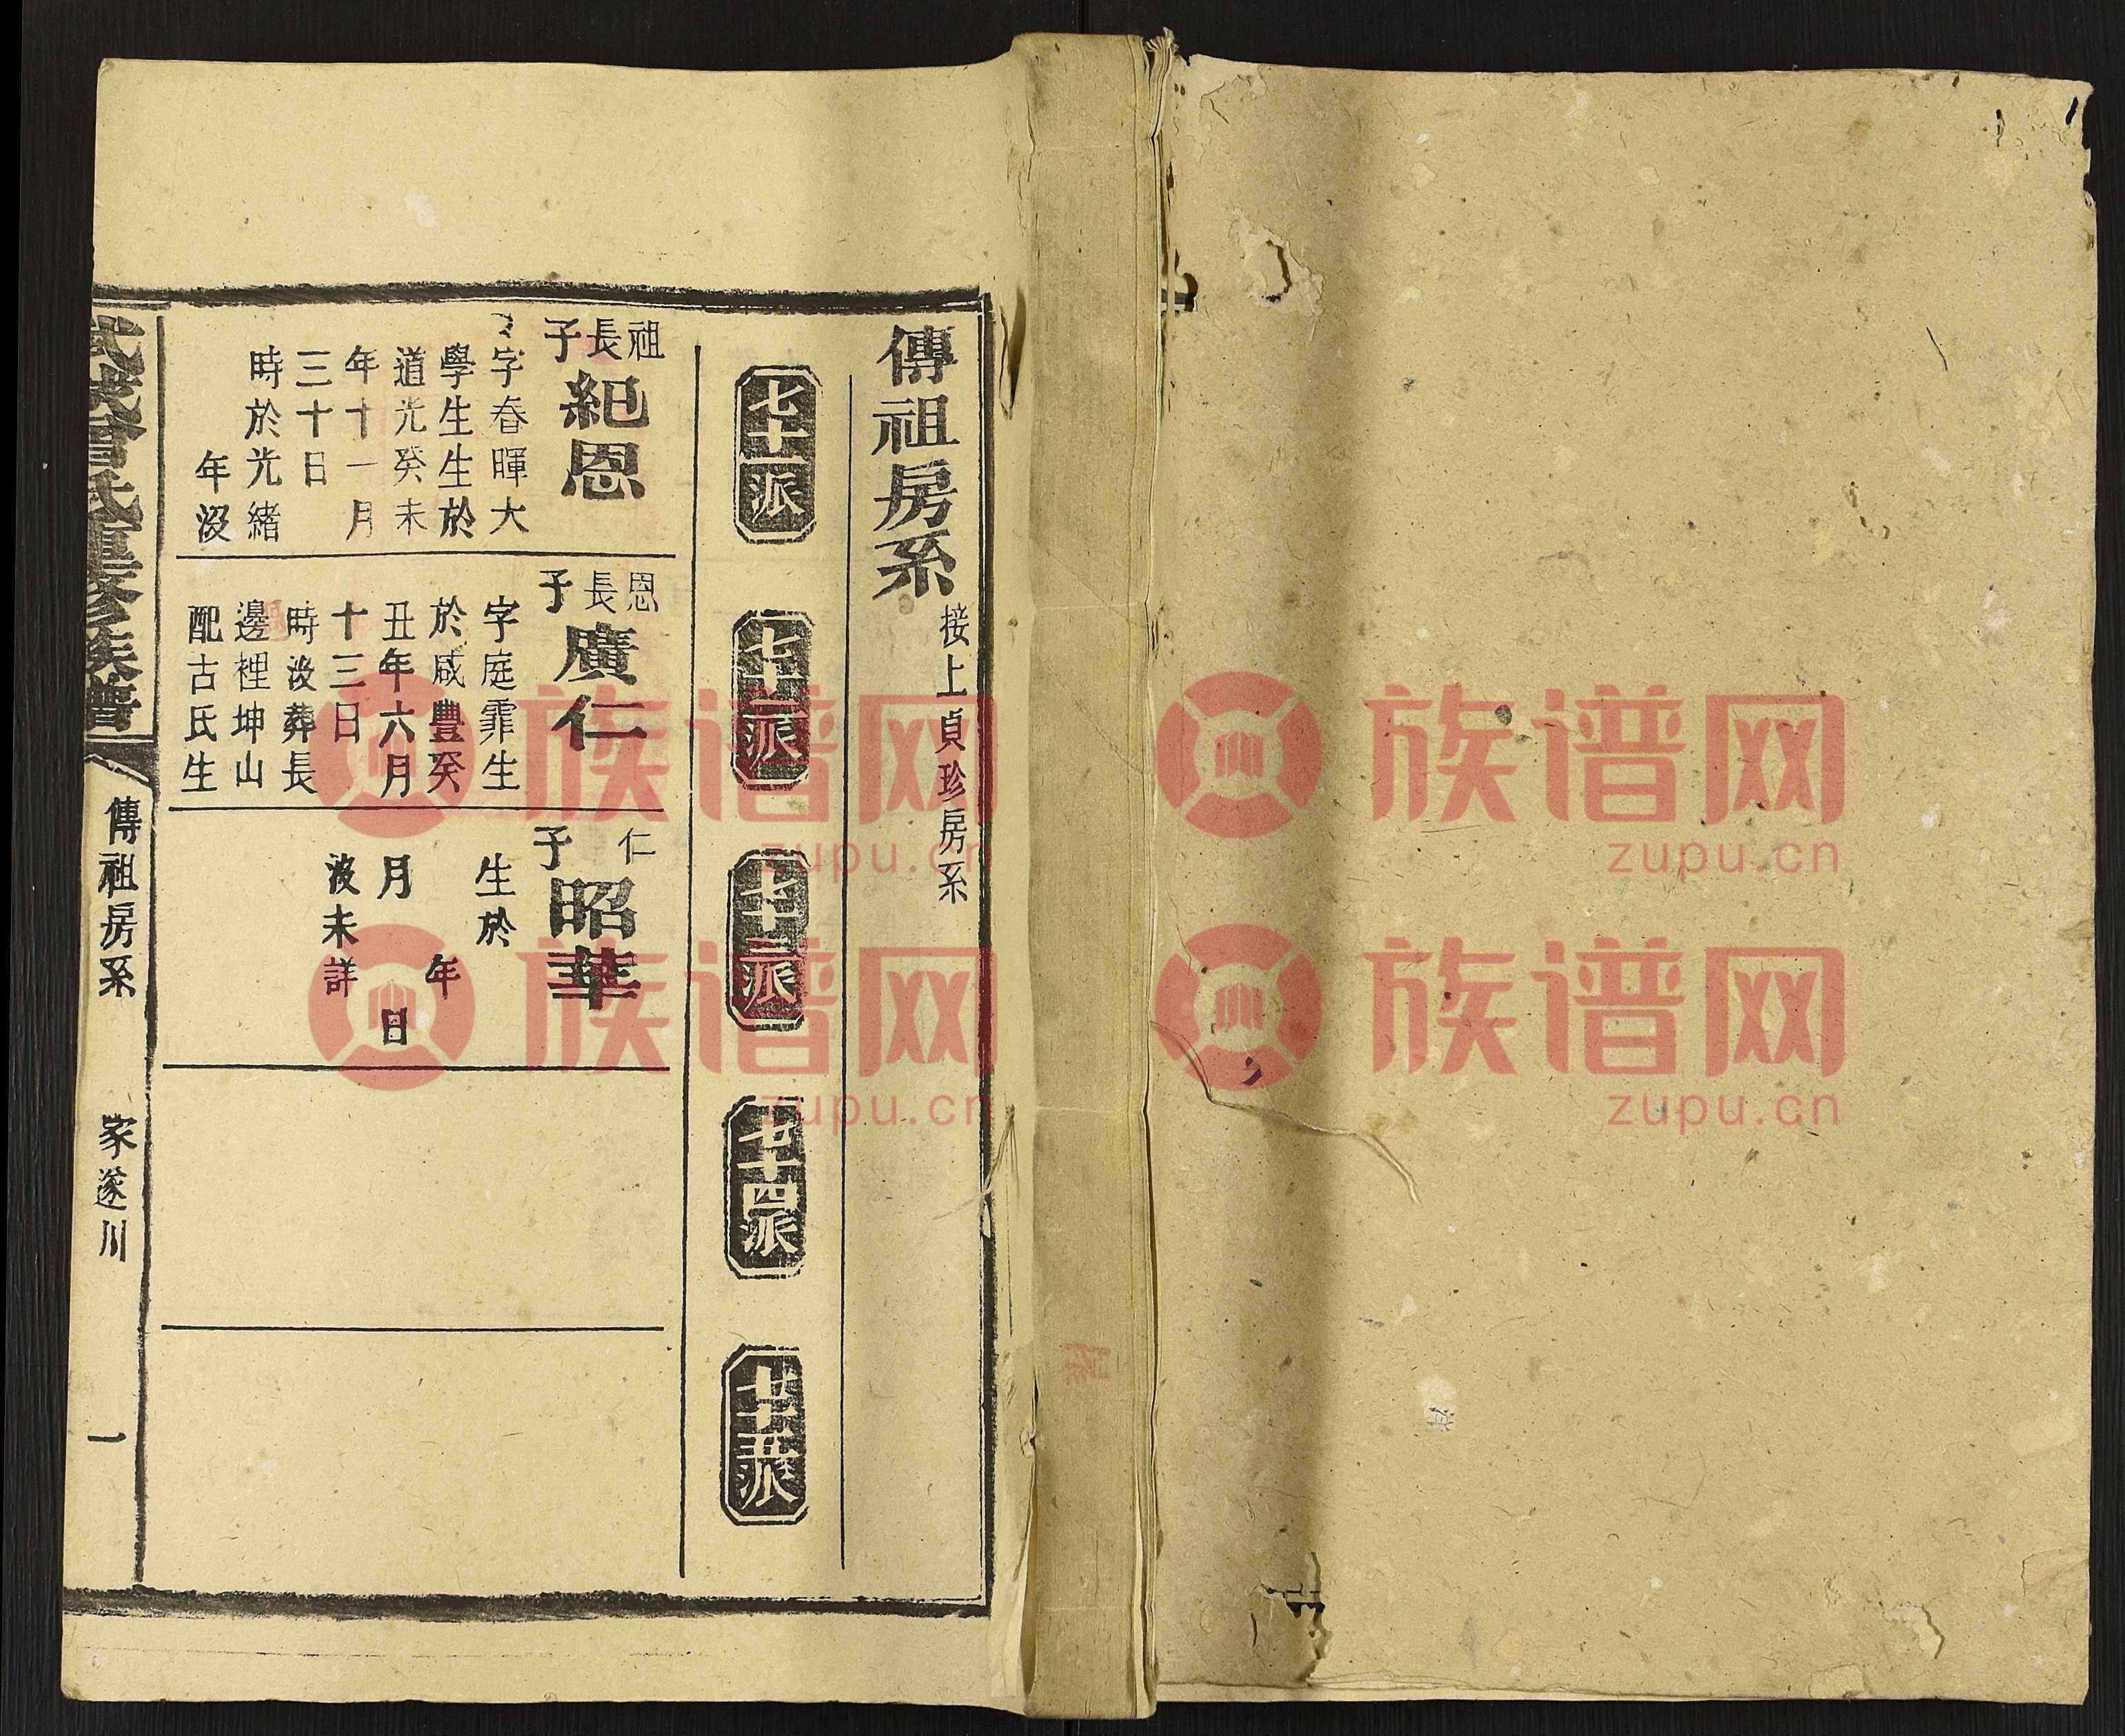 傳祖房系
接上貞珍房系
七十派
七十二派
七十三派
七十四派
七十五派
祖長子
紀恩
字春暉大
學生生於
道光癸未
年十一月
三十日
時於光緒
年沒
恩長子
廣仁
字庭霏生
於咸豐癸
丑年六月
十三日
時沒葬長
邊裡坤山
配古氏生
仁子
昭華
生於
年
月日
沒未詳
武城曾氏重修族譜
傳祖房系
家遂川
一
族谱网
zupu.cn
族谱网
zupu.cn
族谱网
zupu.cn
族谱网
zupu.cn